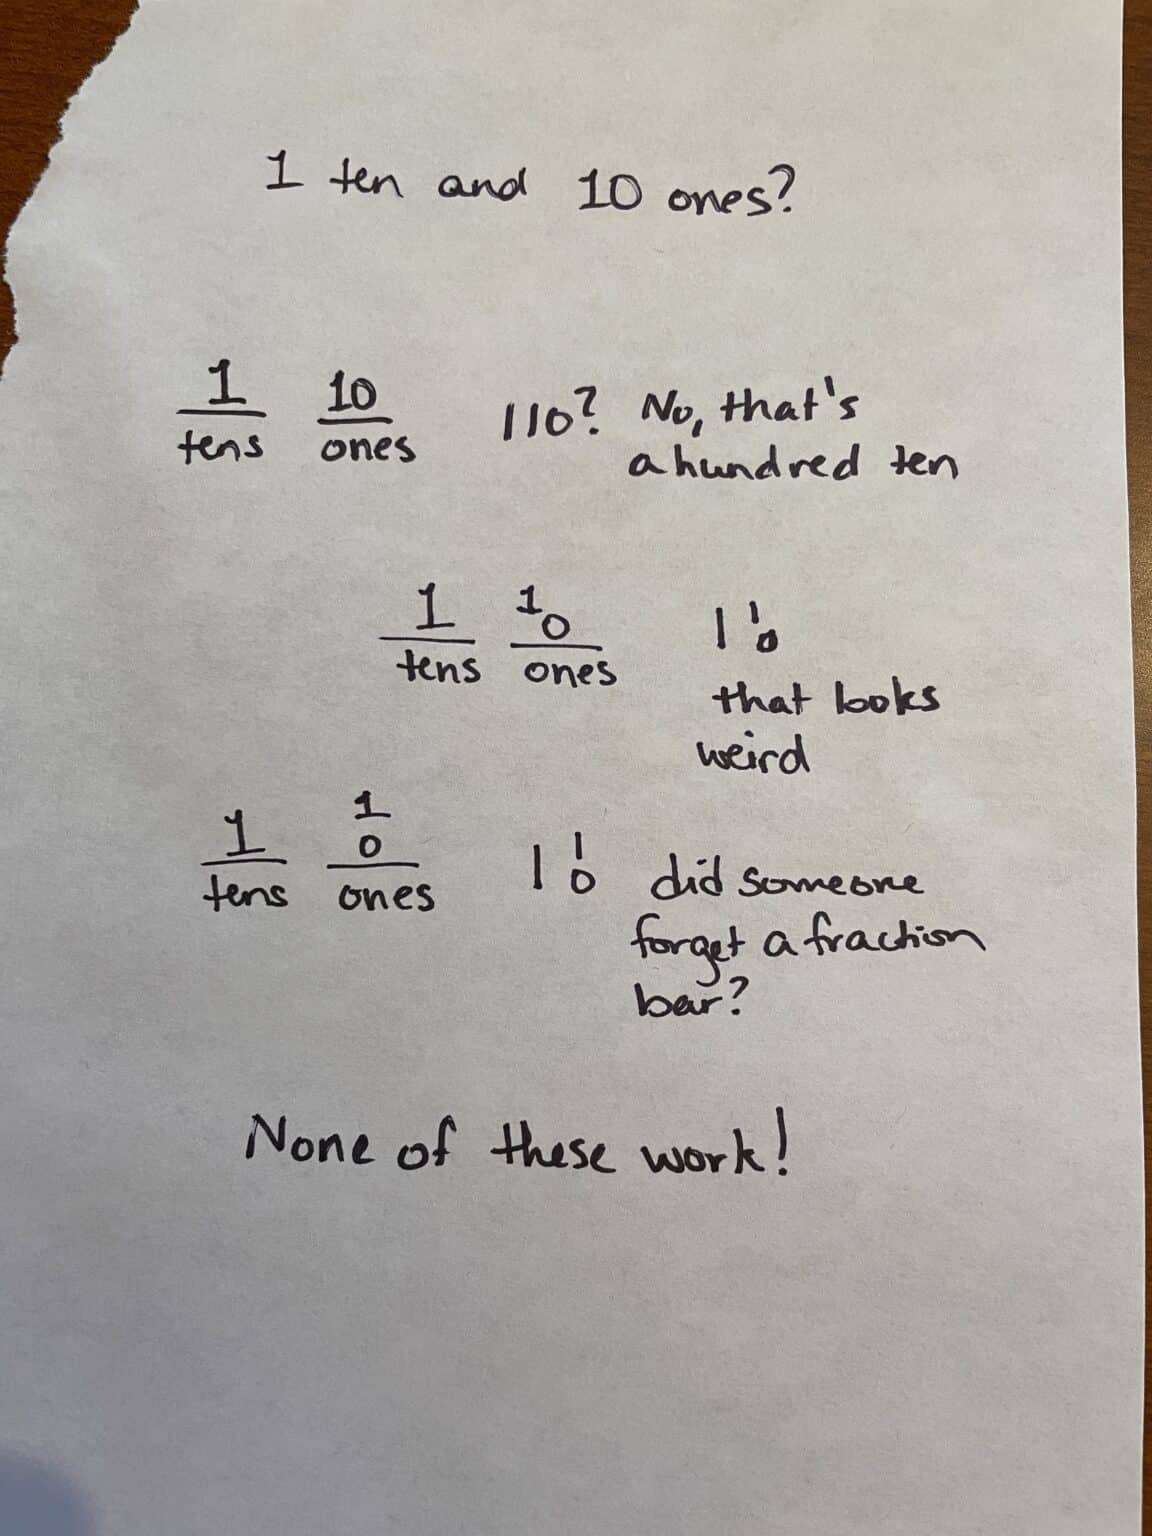 1 ten and 10 ones?
1 10 110? No, that's
tens ones a hundred ten
1 10 1 10
tens ones that looks
weird
1 1
0 1 1
0 did someone
tens ones forget a fraction
bar?
None of these work!